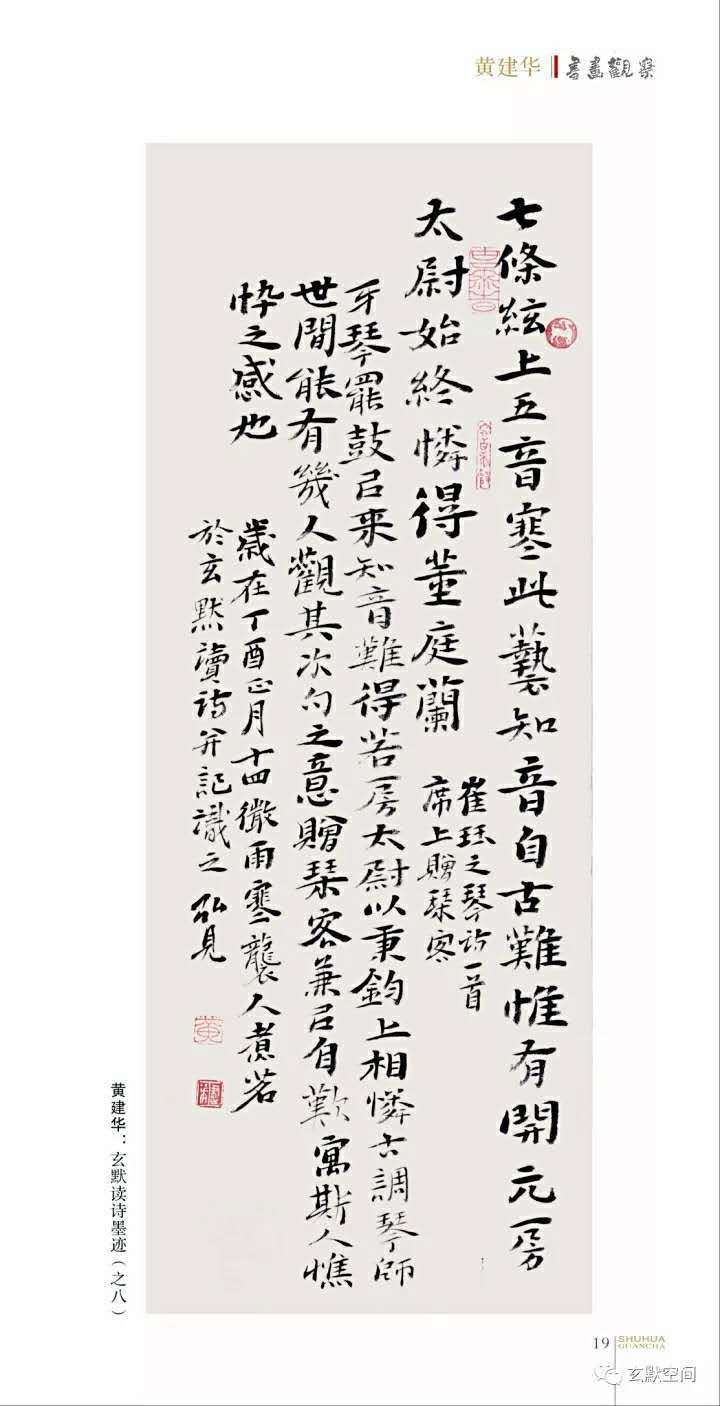 黄建华
書畫觀察
七條絃上五音寒此藝知音自古難惟有開元房
太尉始終憐得董庭蘭
崔珏之琴詩一首
席上贈琴客
牙琴罷鼓以來知音難得若房太尉以秉鈞上相憐古調琴師
世間能有幾人觀其次句之意贈琴客兼以自歎寓斯人憔
悴之感也
歲在丁酉正月十四微雨寒襲人煮茗
於玄默讀詩并記識之 弘見
黄建华：玄默读诗墨迹（之八）
19
SHUHUA
GUANCHA
玄默空间